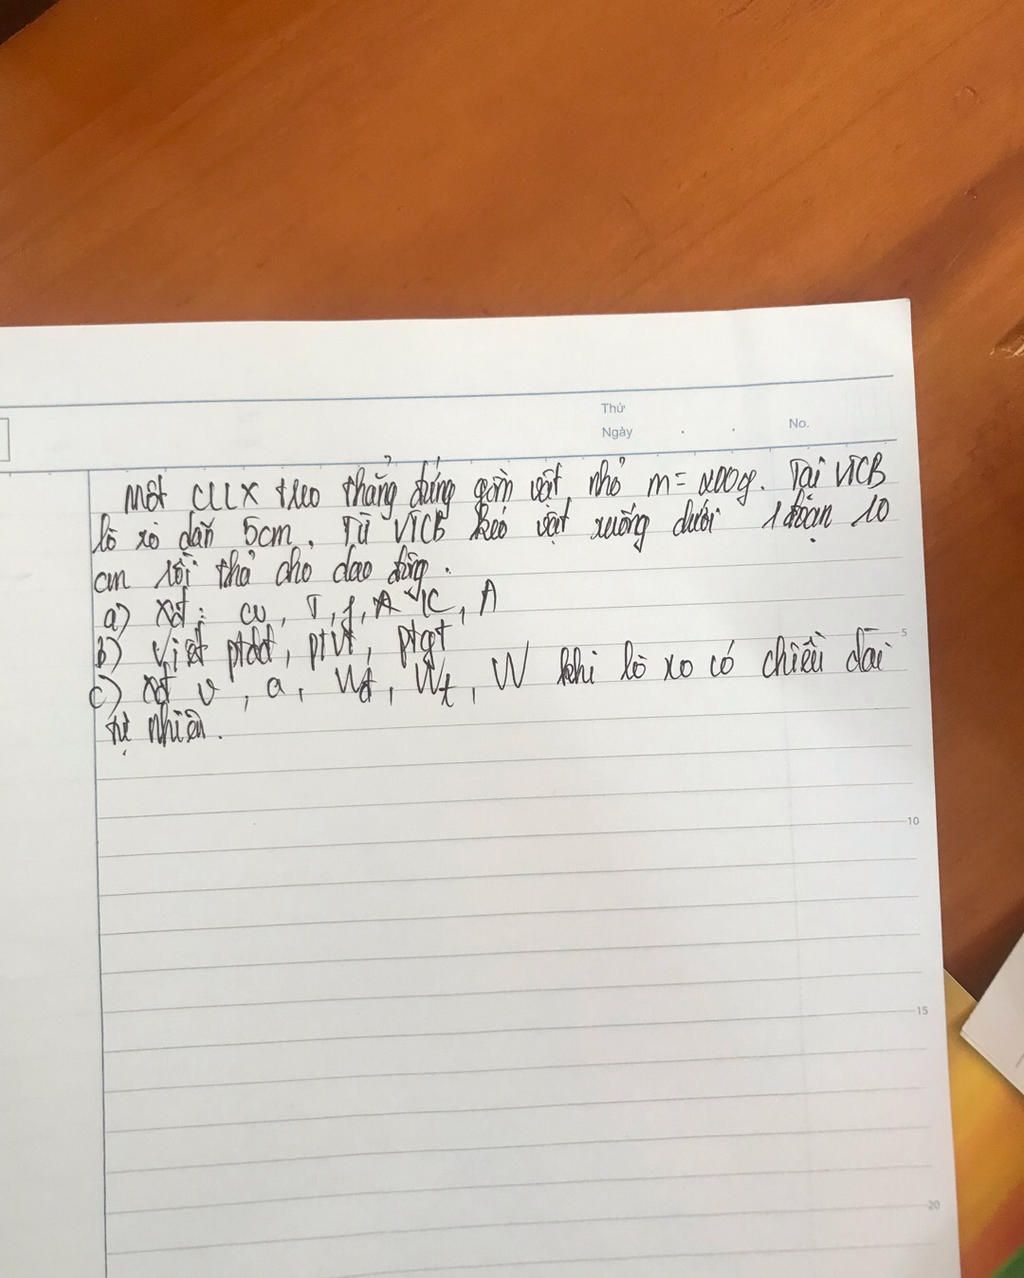 Thứ
Ngày . . No.
Một CLLX treo thẳng đứng gồm vật nhỏ m = 400g. Tại VTCB
lò xo dãn 5cm. Từ VTCB kéo vật xuống dưới 1 đoạn 10
cm rồi thả cho dao động.
a) Xđ: ω, T, f, K, A
b) Viết ptdđ, ptvt, ptgt
c) Xđ v, a, Wđ, Wt, W khi lò xo có chiều dài
tự nhiên.
5
10
15
20